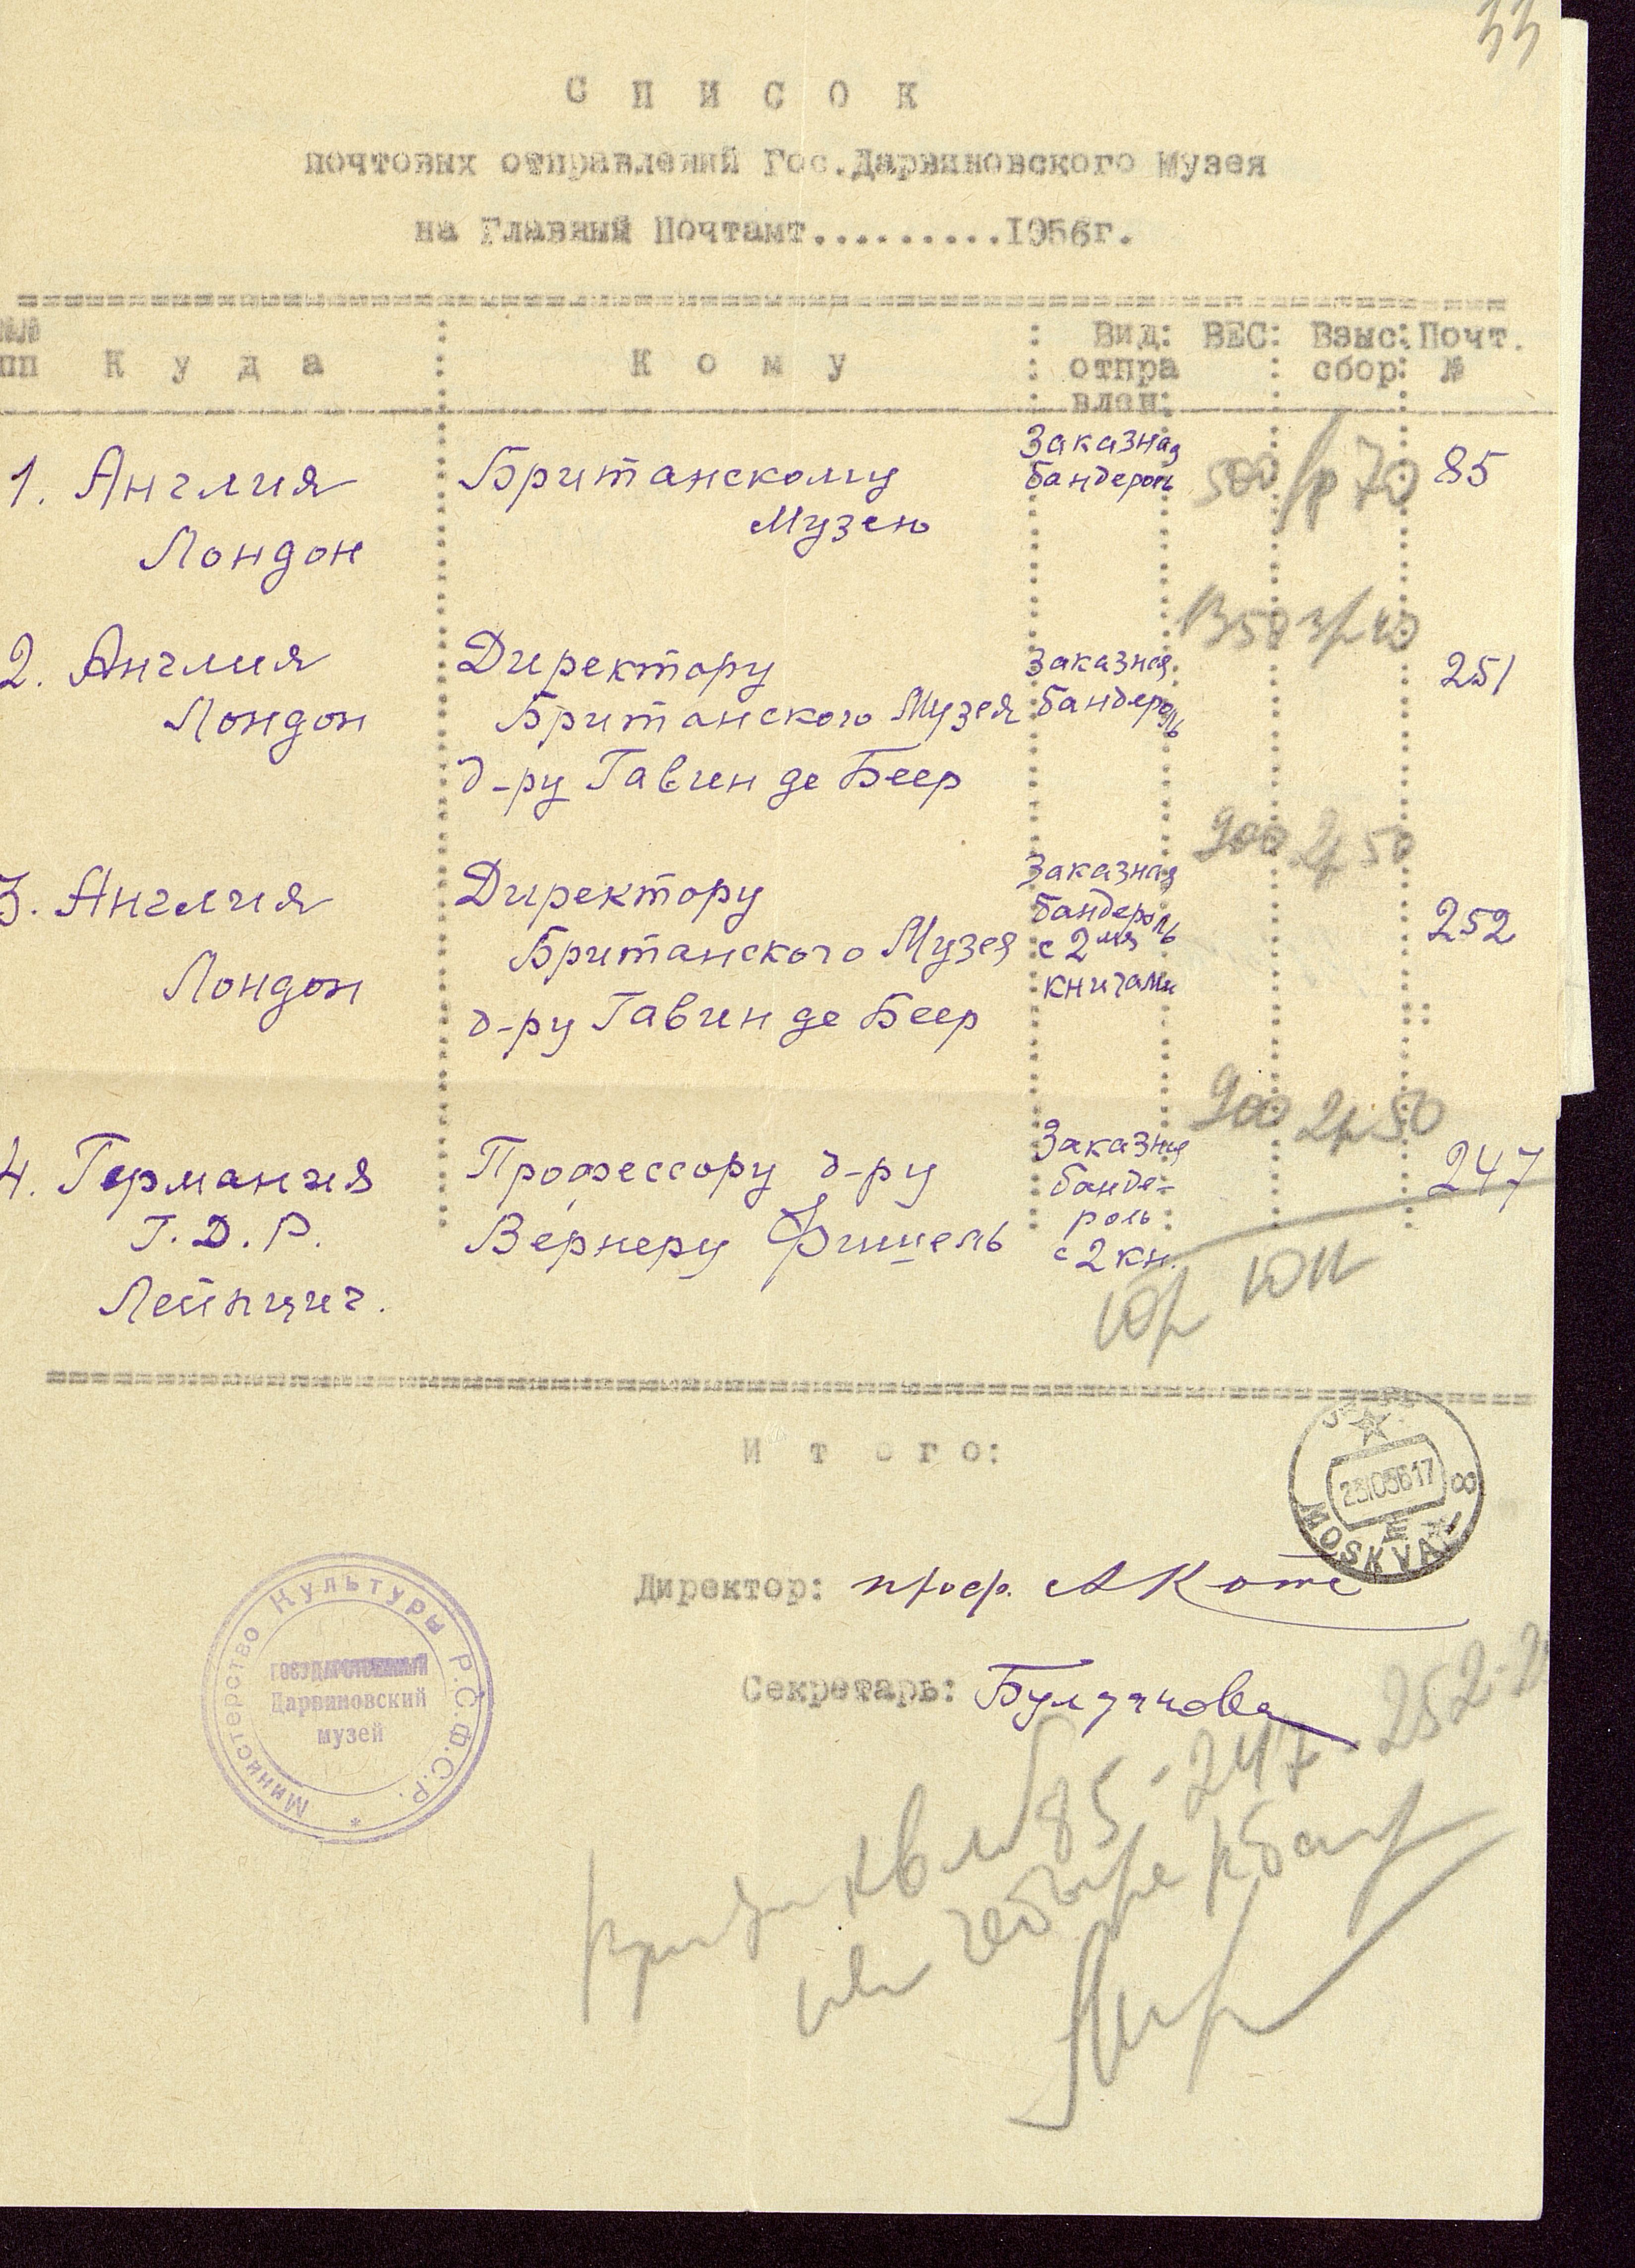 33
СПИСОК
почтовых отправлений Гос.Дарвиновского Музея
на Главный Почтамт.........1956г.
№№ пп Куда : Кому : Вид отправлен: ВЕС: Взыс. сбор: Почт. №
1. Англия Британскому Заказная 500 1р 70 85
Лондон Музею бандероль
1350 3р 40
2. Англия Директору Заказная 251
Лондон Британского Музея бандероль
д-ру Гавин де Беер
900 2р 50
3. Англия Директору Заказная бандероль 252
Лондон Британского Музея с 2мя книгами
д-ру Гавин де Беер
900 2р 50
4. Германия Профессору д-ру Заказная 247
Г.Д.Р. Вернеру Фишель бандероль
Лейпциг. с 2 кн.
10р 10к
Итого:
MOSKVA
Директор: проф. А Котс
Секретарь: Булганова
Министерство Культуры Р.С.Ф.С.Р.
ГОСУДАРСТВЕННЫЙ
Дарвиновский
музей
кв 85-247-252-2
четыре